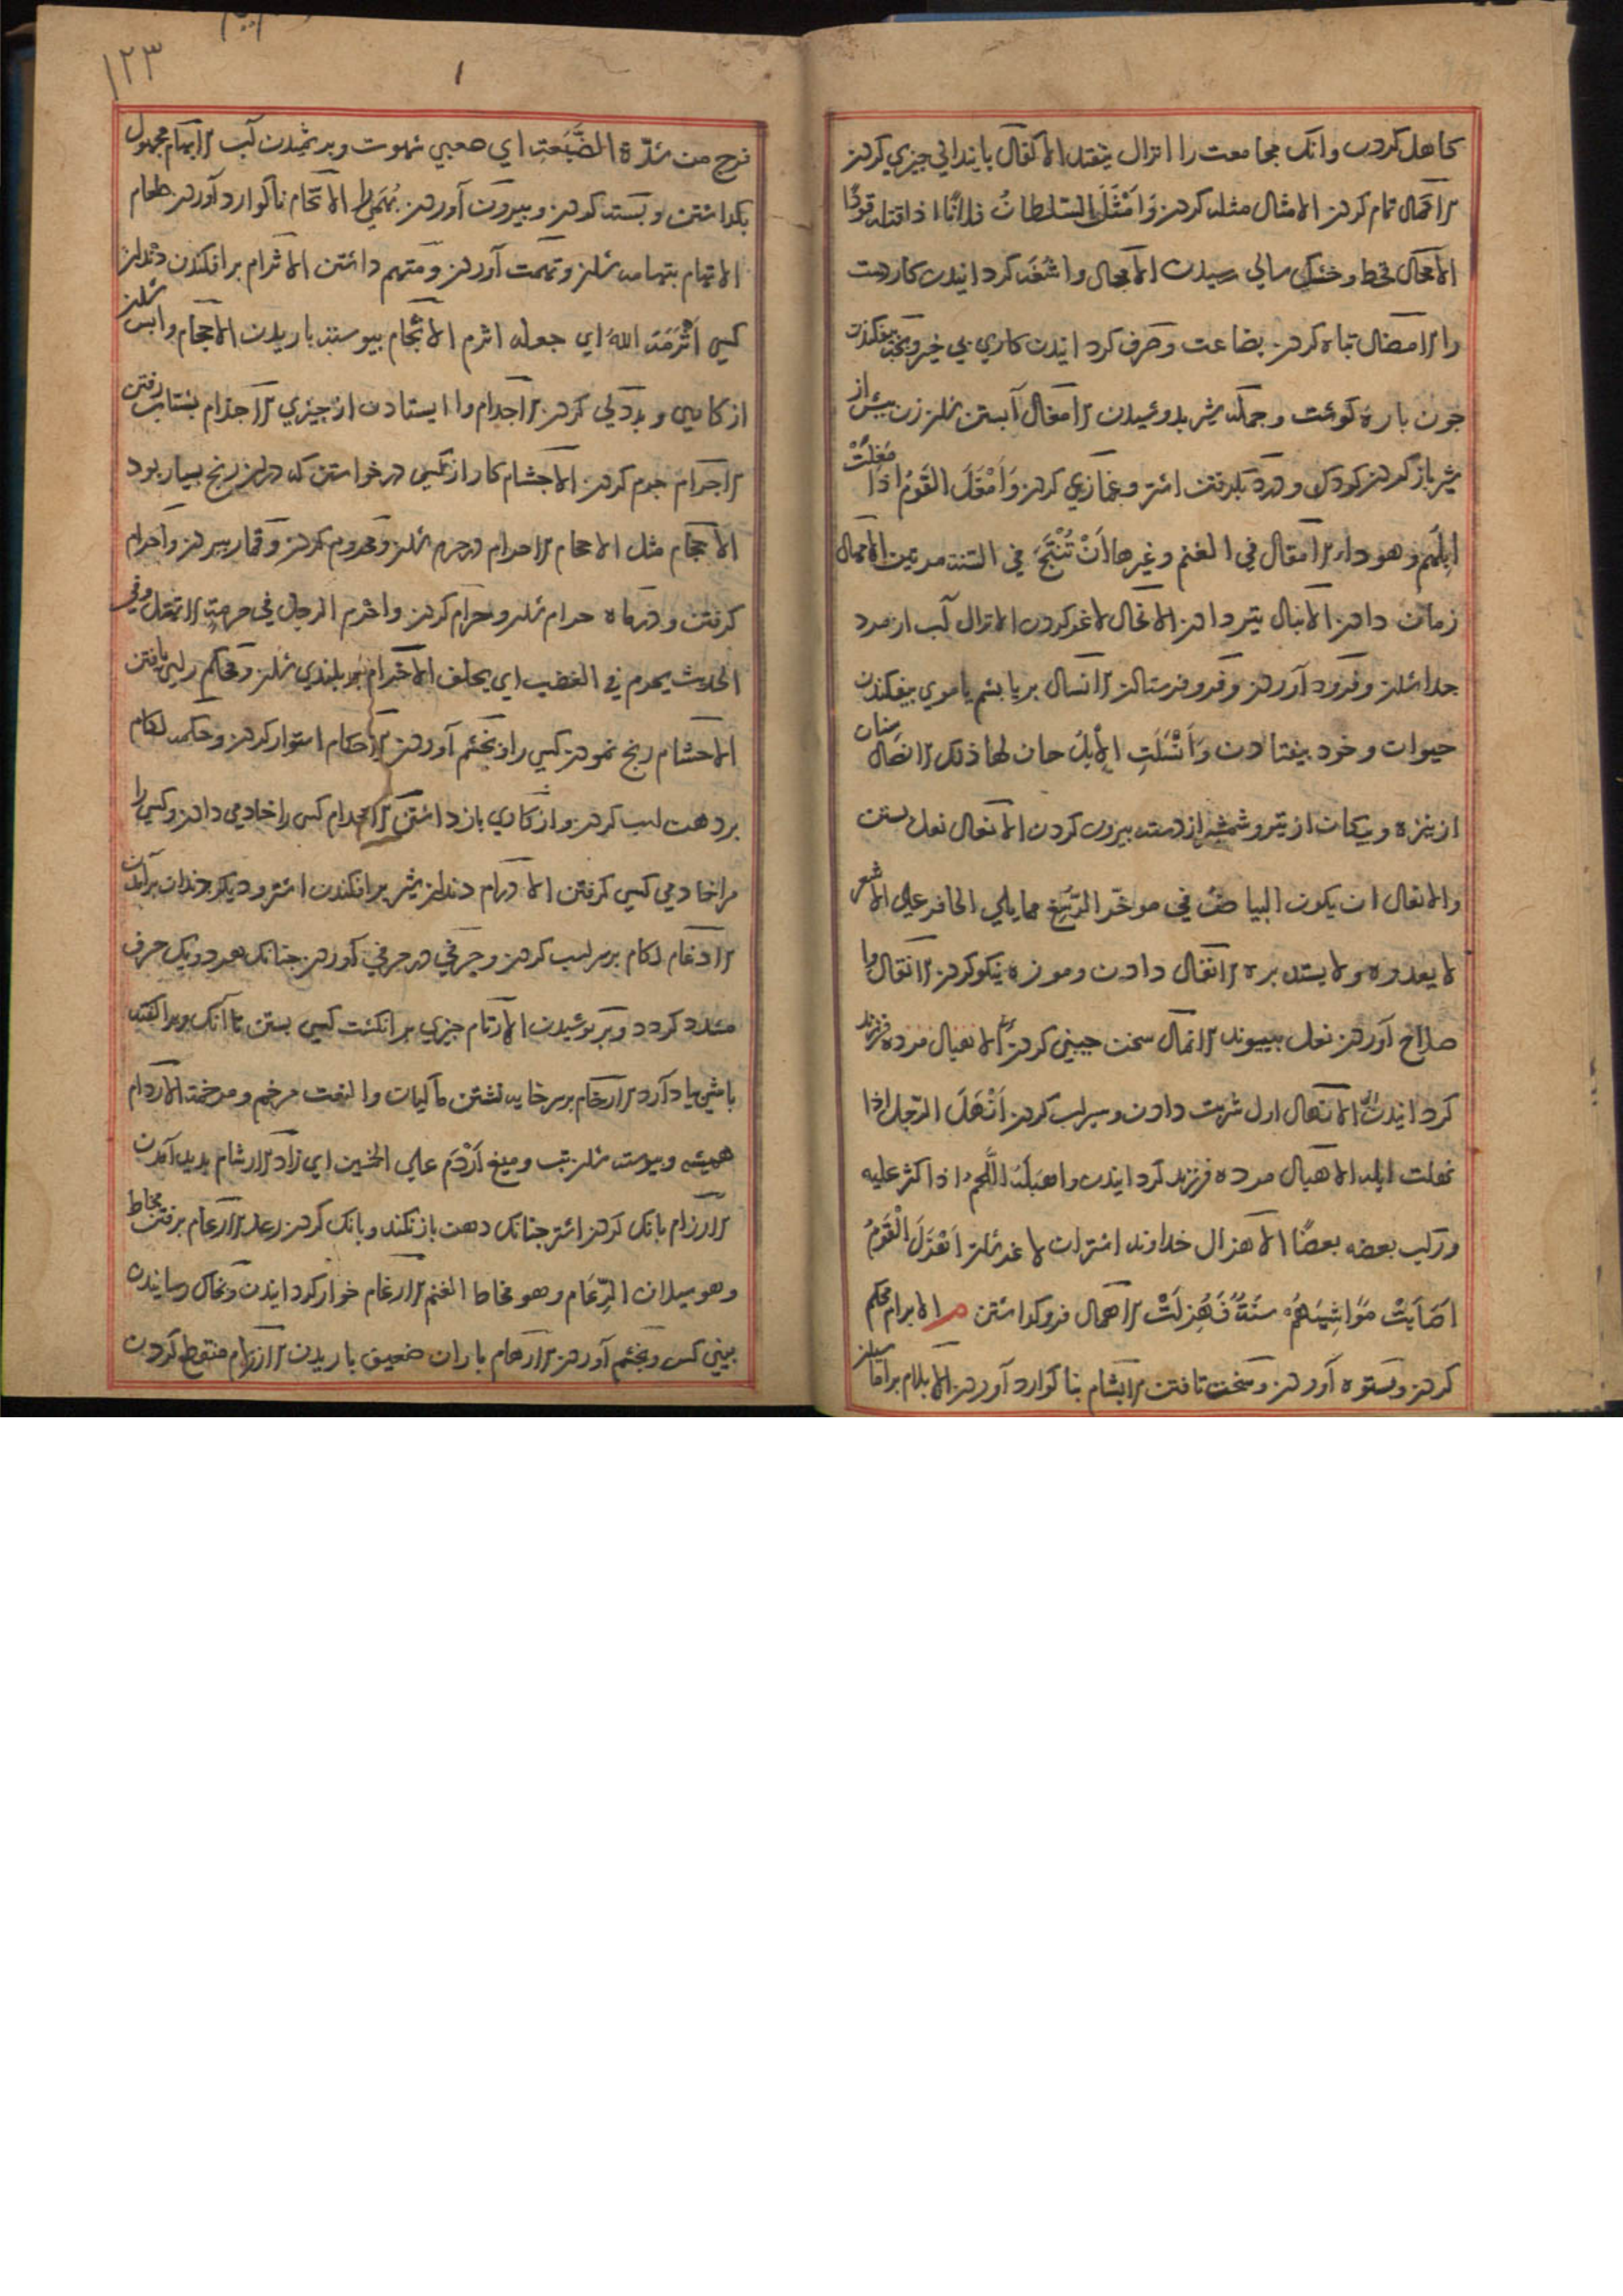 کاهل کردن وانک مجامعت را انزال نیفتد الاکفال بایندانی چیزی کردن
الاکمال تمام کردن الامثال مثله کردن وَاَمْثَلَ السُّلطانُ فلانًا اذا قتله قودًا
الامحال قحط وخشک سالی رسیدن الامجال واشغه کردانیدن کار دست
را الامصال تباه کردن بضاعت وصرف کردانیدن کاری بی خیر وبچه بیفکندن
چون پاره کوشت وجمله شیر بدوشیدن الامغال آبستن شدن زن پیش از
شیر باز کردن کودک ودرد گرفتن اشتر وغمازی کردن وَاَمْغَلَ القَوْمُ اذا مَغِلَتْ
اِبِلُهُم وهو داء الامغال فی الغنم وغیرها اَنْ تُنْتَجَ فی السّنة مرتین الامهال
زمان دادن الانبال تیر دادن الانحال لاغر کردن الانزال آب از مرد
جدا شدن وفرود آوردن وفرو فرستادن الانسال پر یا پشم یا موی بیفکندن
حیوان وخود بیفتادن وَاَنْسَلَتِ الْأِبِلُ حان لها ذلک الانصال سنان
از نیزه وپیکان از تیر وشمشیر از دسته بیرون کردن الانعال نعل بستن
والانعال ان یکون البیاضُ فی موخّر الرّسغ مما یلی الحافر علی الاشعر
لا یعدوه ولا یستدیره الانفال دادن وموزه نیکو کردن الانقال وا
صلاح آوردن نعل بپیوند الانکال سخن چینی کردن الانهیال مرده فرزند
کردانیدن الانهال اول شربت دادن وسیراب کردن اَنْهَلَ الرّجل اذا
نهلت ابله الاهبال مرده فرزند کردانیدن واهبَلَهُ اللَّحمُ اذا کثر علیه
ورکب بعضه بعضًا الاهزال خداوند اشتران لاغر شدن اَهْزَلَ الْقَوْمُ
اَصَابَتْ مَوَاشِیَهُمْ سَنَةٌ فَهُزِلَتْ الاهمال فرو کذاشتن م الابرام محکم
کردن وبستوه آوردن وسخت تافتن الابشام بناکوارد آوردن الابلام برآماسیدن
فرج من شدّة الضَّبَعةِ ای هیجی شهوت الابهام مجهول
بکذاشتن وبسته کردن وبیرون آوردن بُهمَی الاتخام ناکوارد آوردن طعام
الاتهام بتهامه شدن وتهمت آوردن ومتهم داشتن الاثرام برافکندن دندان
کسی اَثْرَمَهُ اللّٰه ای جعله اثرم الاثجام پیوسته باریدن الاحجام وا پس شدن
از کاری وبددلی کردن الاجذام وا ایستادن از چیزی الاجذام بشتاب رفتن
الاجرام جرم کردن الاجشام کار از کسی درخواستن که در ان رنج بسیار بود
الاحجام مثل الاجحام الاحرام در حرم شدن ومحروم کردن وقمار بردن واحرام
کرفتن ودر ماه حرام شدن وحرام کردن واَحْرَم الرجل فی حرمة لا تهتک وفی
الحدیث یحرم فی الغضب ای یحلف
الاحشام رنج نمودن کسی را وبخشم آوردن الاحکام استوار کردن وحکمه لکام
بر دهن اسب کردن واز کاری باز داشتن الاخدام کسی را خادمی دادن وکسی را
مر خادمی کسی کرفتن الادرام دندان شیر برافکندن اشتر ودیگر دندان برآمدن
الادغام لکام بر سر اسب کردن وحرفی در حرفی آوردن چنانک هر دو یک حرف
مشدد کردد الارتام چیزی بر انکشت کسی بستن تا آنک
با مثی یاد آرد الارخام بر سر خایه نشستن ماکیان والنعت مرخم ومرخمة الاردام
همیشه وپیوسته شدن تب ومیغ اَرْدَم علی الخمسین ای زاد الارشام پدید آمدن
الارزام بانک کردن اشتر چنانک دهن باز نکند وبانک کردن رعد الارعام برفتن مخاط
وهو سیلان الرُّعَام وهو مخاط الغنم الارغام خوار کردانیدن وبخاک رسانیدن
بینی کس وبخشم آوردن الارهام باران ضعیف باریدن الازرام منقطع کردن
۱۲۳